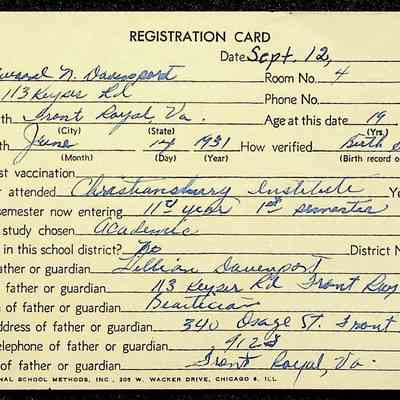 REGISTRATION CARD
Date Sept. 12,
N. Davenport Room No. 4
113 Keyser Rd Phone No.
th Front Royal, Va. Age at this date 19
(City) (State) (Yrs.)
th June 14 1931 How verified Birth
(Month) (Day) (Year) (Birth record o
st vaccination
r attended Christiansburg Institute Ye
semester now entering 11th year 1st semester
study chosen Academic
in this school district? No District N
ather or guardian Lillian Davenport
father or guardian 113 Keyser Rd Front Roy
of father or guardian Beautician
ddress of father or guardian 340 Osage St. Front
elephone of father or guardian 912J
of father or guardian Front Royal, Va.
NAL SCHOOL METHODS, INC., 205 W. WACKER DRIVE, CHICAGO 6, ILL